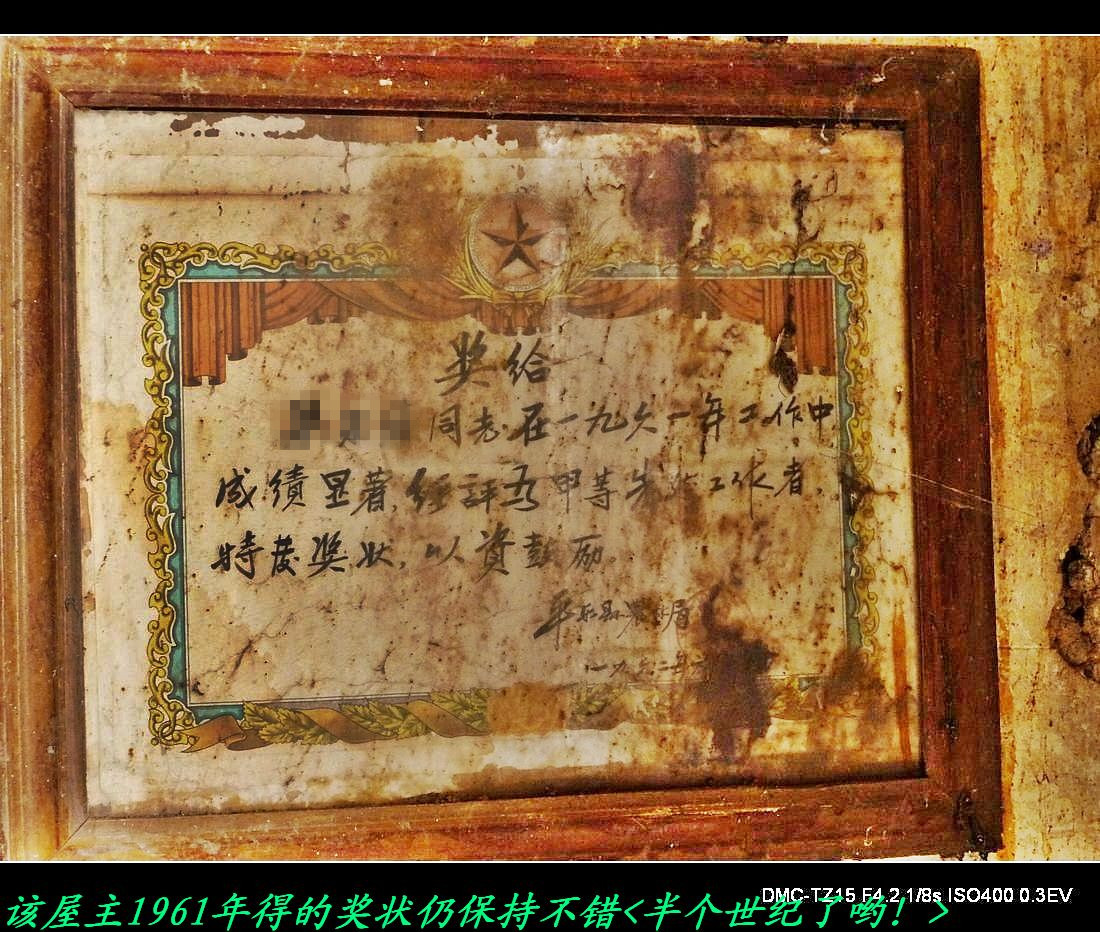 奖给
同志在一九六一年工作中
成绩显著,经评为甲等先进工作者,
特发奖状,以资鼓励。
平乐县农业局
一九六二年
DMC-TZ15 F4.2 1/8s ISO400 0.3EV
该屋主1961年得的奖状仍保持不错<半个世纪了哟！>